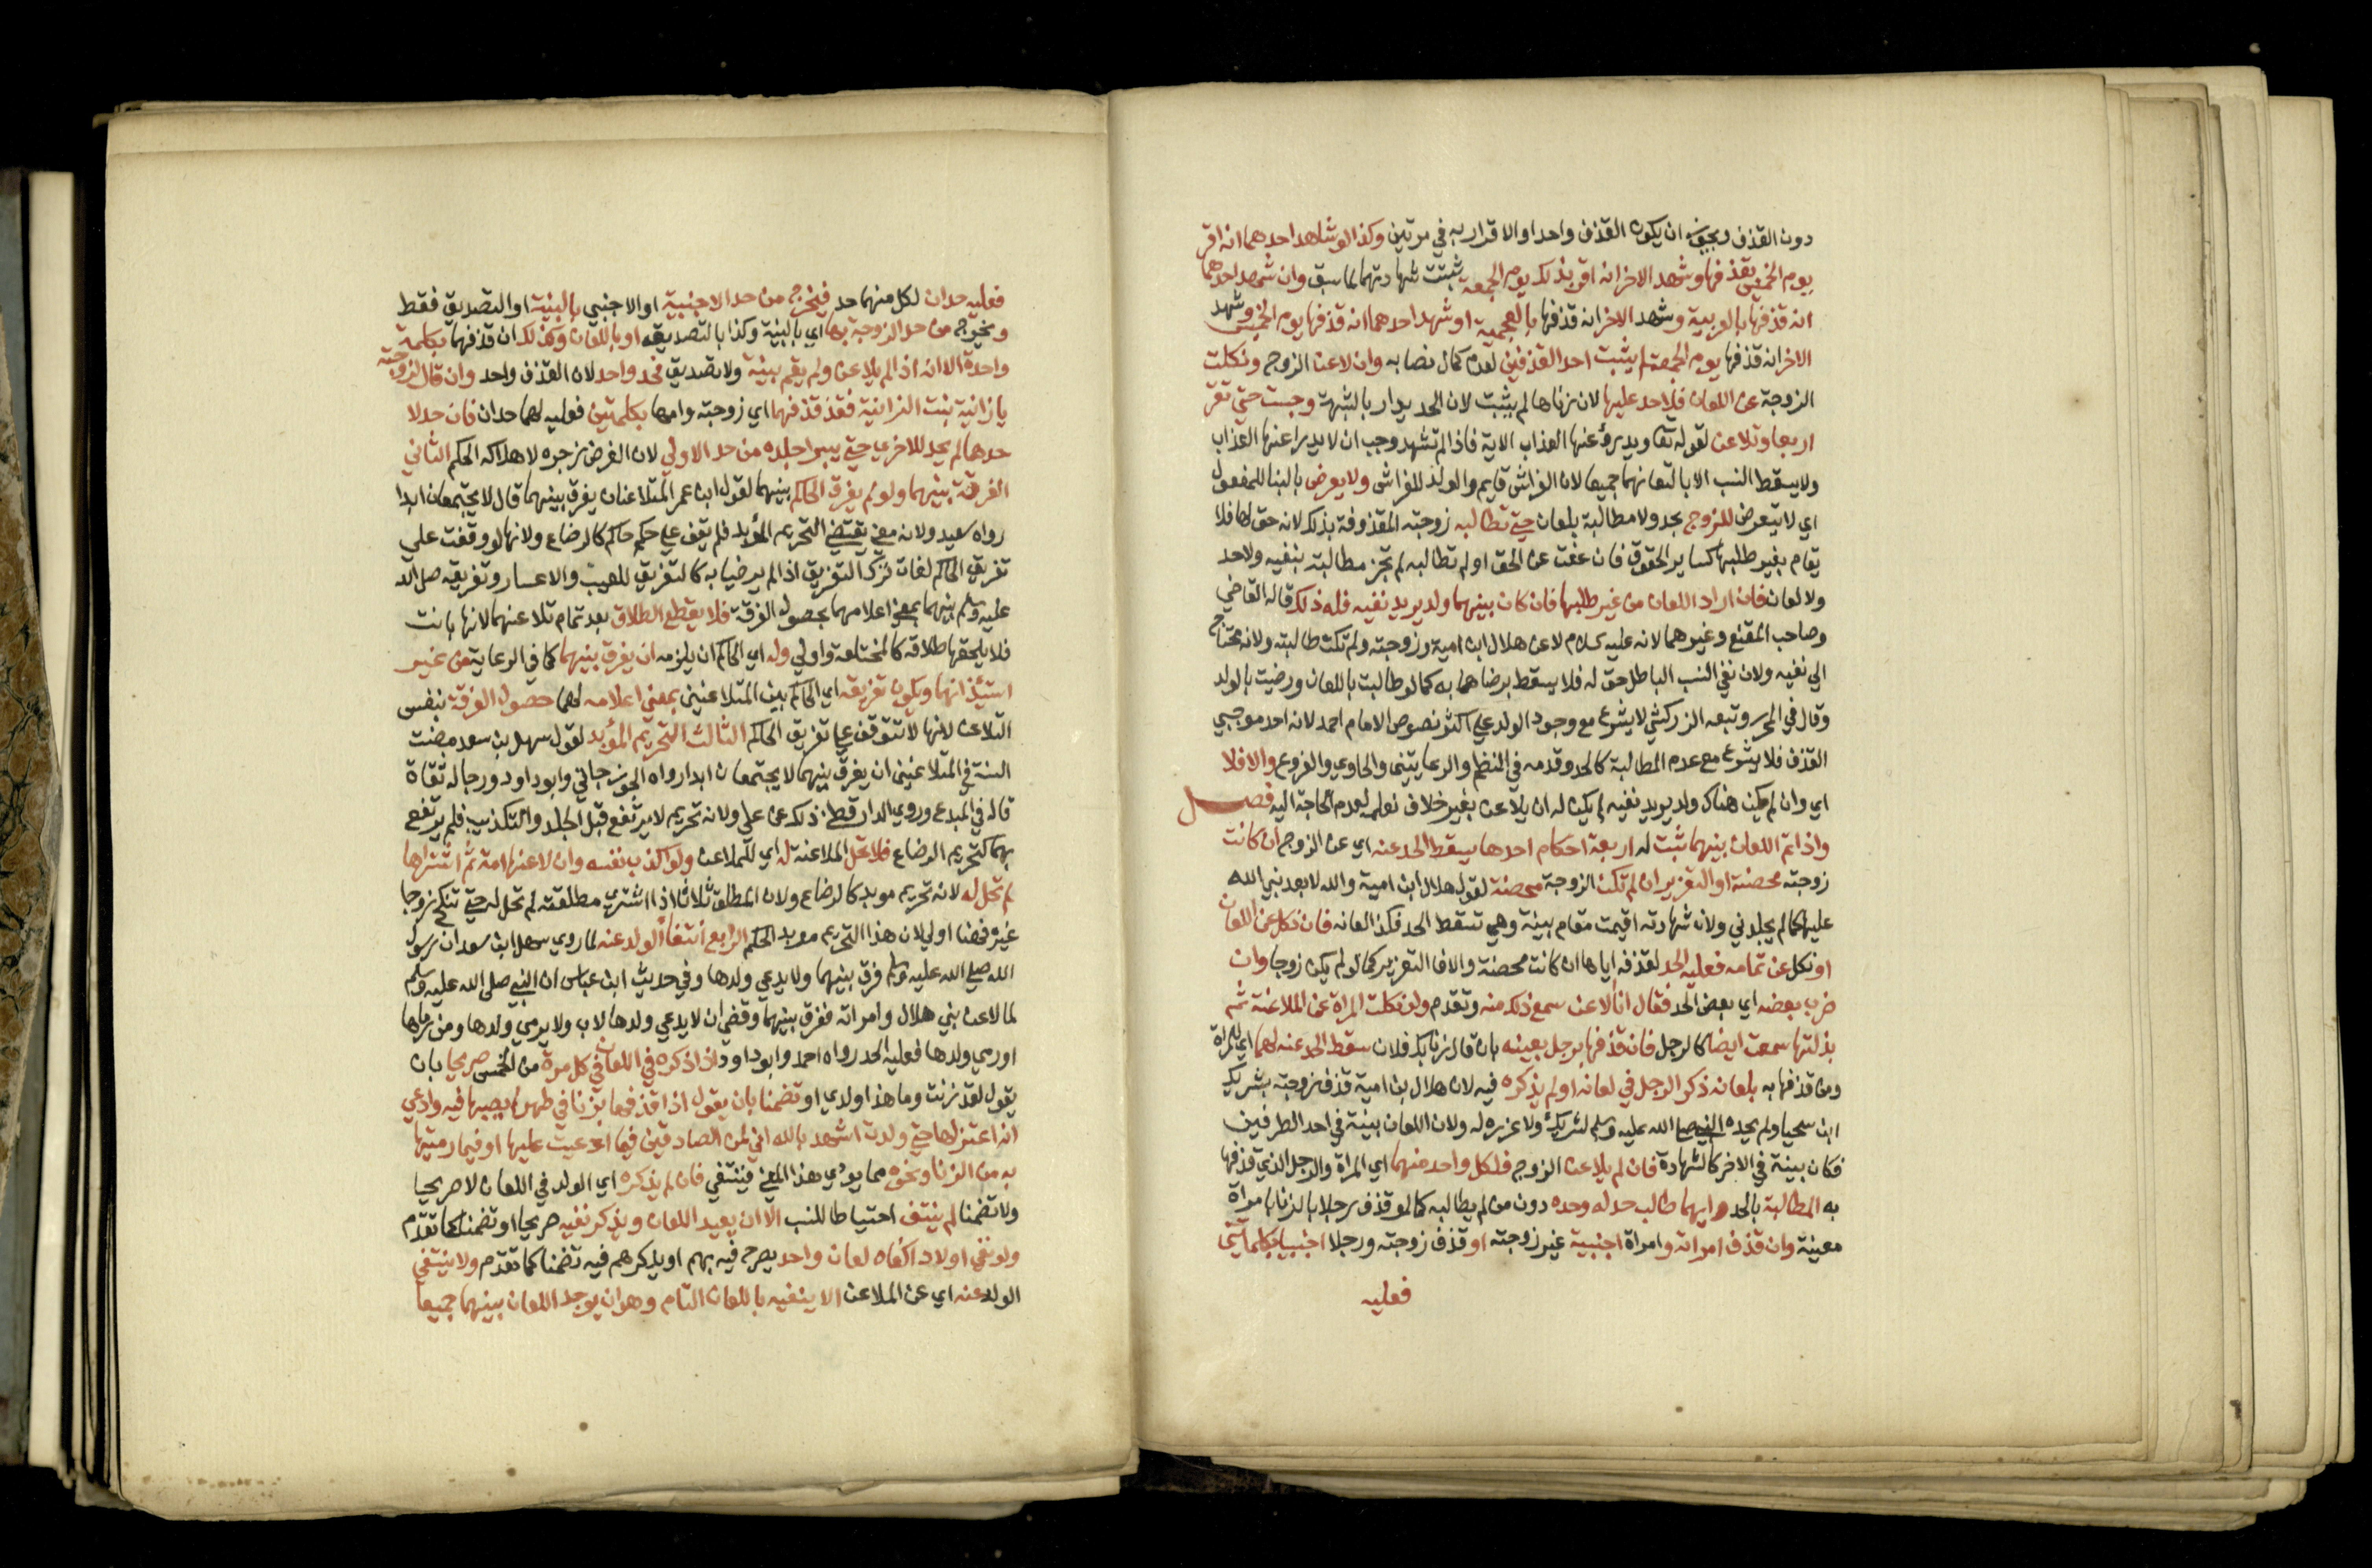 دون القذف ويجوز ان يكون القذف واحدا والاقرار به في مرتين وكذا لو شاهد احدهما انه اقر
يوم الخميس بقذفها وشهد الاخر انه اقر بذلك يوم الجمعة ثبتت شهادتهما لما سبق وان شهد احدهما
انه قذفها بالعربية وشهد الاخر انه قذفها بالعجمية او شهد احدهما انه قذفها يوم الخميس وشهد
الاخر انه قذفها يوم الجمعة لم يثبت احد القذفين لعدم كمال نصابه وان لاعن الزوج ونكلت
الزوجة عن اللعان فلا حد عليها لان زناها لم يثبت لان الحد يدرا بالشبهة وحبست حتي تقر
اربعا وتلاعن لقوله تعا ويدرؤ عنها العذاب الاية فاذا لم تشهد وجب ان لا يدرا عنها العذاب
ولا يسقط النسب الا بالتعانهما جميعا لان الفراش قايم والولد للفراش ولا يعرض بالبنا للمفعول
اي لا يتعرض للزوج بحد ولا مطالبة بلعان حتي تطالبه زوجته المقذوفة بذلك لانه حق لها فلا
يقام بغير طلبها كساير الحقوق فان عفت عن الحق او لم تطالبه لم تجز مطالبته بنفيه ولا حد
ولا لعان فان اراد اللعان من غير طلبها فان كان بينهما ولد يريد نفيه فله ذلك قاله القاضي
وصاحب المقنع وغيرهما لانه عليه سلام لاعن هلال ابن امية وزوجته ولم تكن طالبته ولانه محتاج
الي نفيه ولان نفي النسب الباطل حق له فلا يسقط برضاها به كما لو طالبت باللعان ورضيت بالولد
وقال في المحرر وتبعه الزركشي لا يشرع مع وجود الولد علي اكثر نصوص الامام احمد لانه احد موجبي
القذف فلا يشرع مع عدم المطالبة كالحد وقدمه في النظم والرعايتين والحاوي والفروع والا فلا
اي وان لم يكن هناك ولد يريد نفيه لم يكن له ان يلاعن بغير خلاف نعلمه لعدم الحاجة اليه فصل
واذا تم اللعان بينهما ثبت له اربعة احكام احدها يسقط الحد عنه اي عن الزوج ان كانت
زوجته محصنة او التعزير ان لم تكن الزوجة محصنة لقول هلال ابن امية والله لا يعذبني الله
عليها كما لم يجلدني ولان شهادته اقيمت مقام بينة وهي تسقط الحد فكذا لعانه فان نكل عن اللعان
او نكل عن تمامه فعليه الحد لقذفه اياها ان كانت محصنة والا فالتعزير كما لو لم يكن زوجا وان
ضرب بعضه اي بعض الحد فقال انا الاعن سمع ذلك منه وتقدم ولو نكلت المراة عن الملاعنة ثم
بذلتها سمعت ايضا كالرجل فان قذفها برجل بعينه بان قال زنا بك فلان سقط الحد عنه لهما اي للمراة
ومن قذفها به بلعانه ذكر الرجل في لعانه او لم يذكره فيه لان هلال بن امية قذف زوجته بشريك
ابن سحيا ولم يحده النبي صلي الله عليه وسلم لشريك ولا عزره له ولان اللعان بينة في احد الطرفين
فكان بينة في الاخر كالشهادة فان لم يلاعن الزوج فلكل واحد منهما اي المراة والرجل الذي قذفها
به المطالبة بالحد وايهما طالب حد له وحده دون من لم يطالبه كما لو قذف رجلا بالزنا بامراة
معينة وان قذف امراته وامراة اجنبية غير زوجته او قذف زوجته ورجلا اجنبيا بكلمتين
فعليه
فعليه حدان لكل منهما حد فيخرج من حد الاجنبية او الاجنبي بالبينة او التصديق فقط
ويخرج من حد الزوجة بها اي بالبينة وكذا بالتصديق او باللعان وكذلك ان قذفهما بكلمة
واحدة الا انه اذا لم يلاعن ولم يقم بينة ولا تصديق فحد واحد لان القذف واحد وان قال لزوجته
يا زانية بنت الزانية فقد قذفهما اي زوجته وامها بكلمتين فعليه لهما حدان فان حد لا
حدهما لم يحد للاخري حتي يبرا جلده من حد الاولي لان الغرض زجره لا هلاكه الحكم الثاني
الفرقة بينهما ولو لم يفرق الحاكم بينهما لقول ابن عمر المتلاعنان يفرق بينهما قال لا يجتمعان ابدا
رواه سعيد ولانه معني يقتضي التحريم المؤبد فلم يقف علي حكم حاكم كالرضاع ولانها لو وقفت علي
تفريق الحاكم لفات ترك التفريق اذا لم يرضيا به كالتفريق للعيب والاعسار وتفريقه صلى الله
عليه وسلم بينهما بمعني اعلامهما بحصول الفرقة فلا يقطع الطلاق بعد تمام تلاعنهما لانها بانت
فلا يلحقها طلاقه كالمختلعة واولي وله اي الحاكم ان يلزمه ان يفرق بينهما كما في الرعاية من غير
استئذانهما ويكون تفريقه اي الحاكم بين المتلاعنين بمعني اعلامه لهما حصول الفرقة بنفس
التلاعن لانها لا تتوقف علي تفريق الحاكم الثالث التحريم المؤبد لقول سهل بن سعد مضت
السنة في المتلاعنين ان يفرق بينهما لا يجتمعان ابدا رواه الجوزجاني وابو داود ورجاله ثقاة
قاله في المبدع وروي الدارقطني ذلك عن علي ولانه تحريم لا يرتفع قبل الجلد والتكذيب فلم يرتفع
بهما كتحريم الرضاع فلا تحل الملاعنة له اي للملاعن ولو اكذب نفسه وان لاعنها امة ثم اشتراها
لم تحل له لانه تحريم موبد كالرضاع ولان المطلق ثلاثا اذا اشتري مطلقته لم تحل له حتي تنكح زوجا
غيره فهنا اولي لان هذا التحريم موبد الحكم الرابع انتفاء الولد عنه لما روي سهل ابن سعد ان رسول
الله صلي الله عليه وسلم فرق بينهما ولا يدعي ولدها وفي حديث ابن عباس ان النبي صلى الله عليه وسلم
لما لاعن بني هلال وامراته ففرق بينهما وقضي ان لا يدعي ولدها لاب ولا يرمي ولدها ومن رماها
او رمي ولدها فعليه الحد رواه احمد وابو داود ان ذكره في اللعان في كل مرة من الخمس صريحا بان
يقول لقد زنت وما هذا ولدي او تضمنا بان يقول اذا قذفها بزنا في طهر لم يصبها فيه وادعي
انه اعتزلها حتي ولدت اشهد بالله اني لمن الصادقين فيما ادعيت عليها او فيما رميتها
به من الزنا ونحوه مما يودي هذا المعني فينتفي فان لم يذكره اي الولد في اللعان لا صريحا
ولا تضمنا لم ينتف احتياطا للنسب الا ان يعيد اللعان ويذكر نفيه صريحا او تضمنا كما تقدم
ولو نفي اولادا كفاه لعان واحد يصرح فيه بهم او يذكرهم فيه تضمنا كما تقدم ولا ينتفي
الولد عنه اي عن الملاعن الا بنفيه باللعان التام وهو ان يوجد اللعان بينهما جميعا